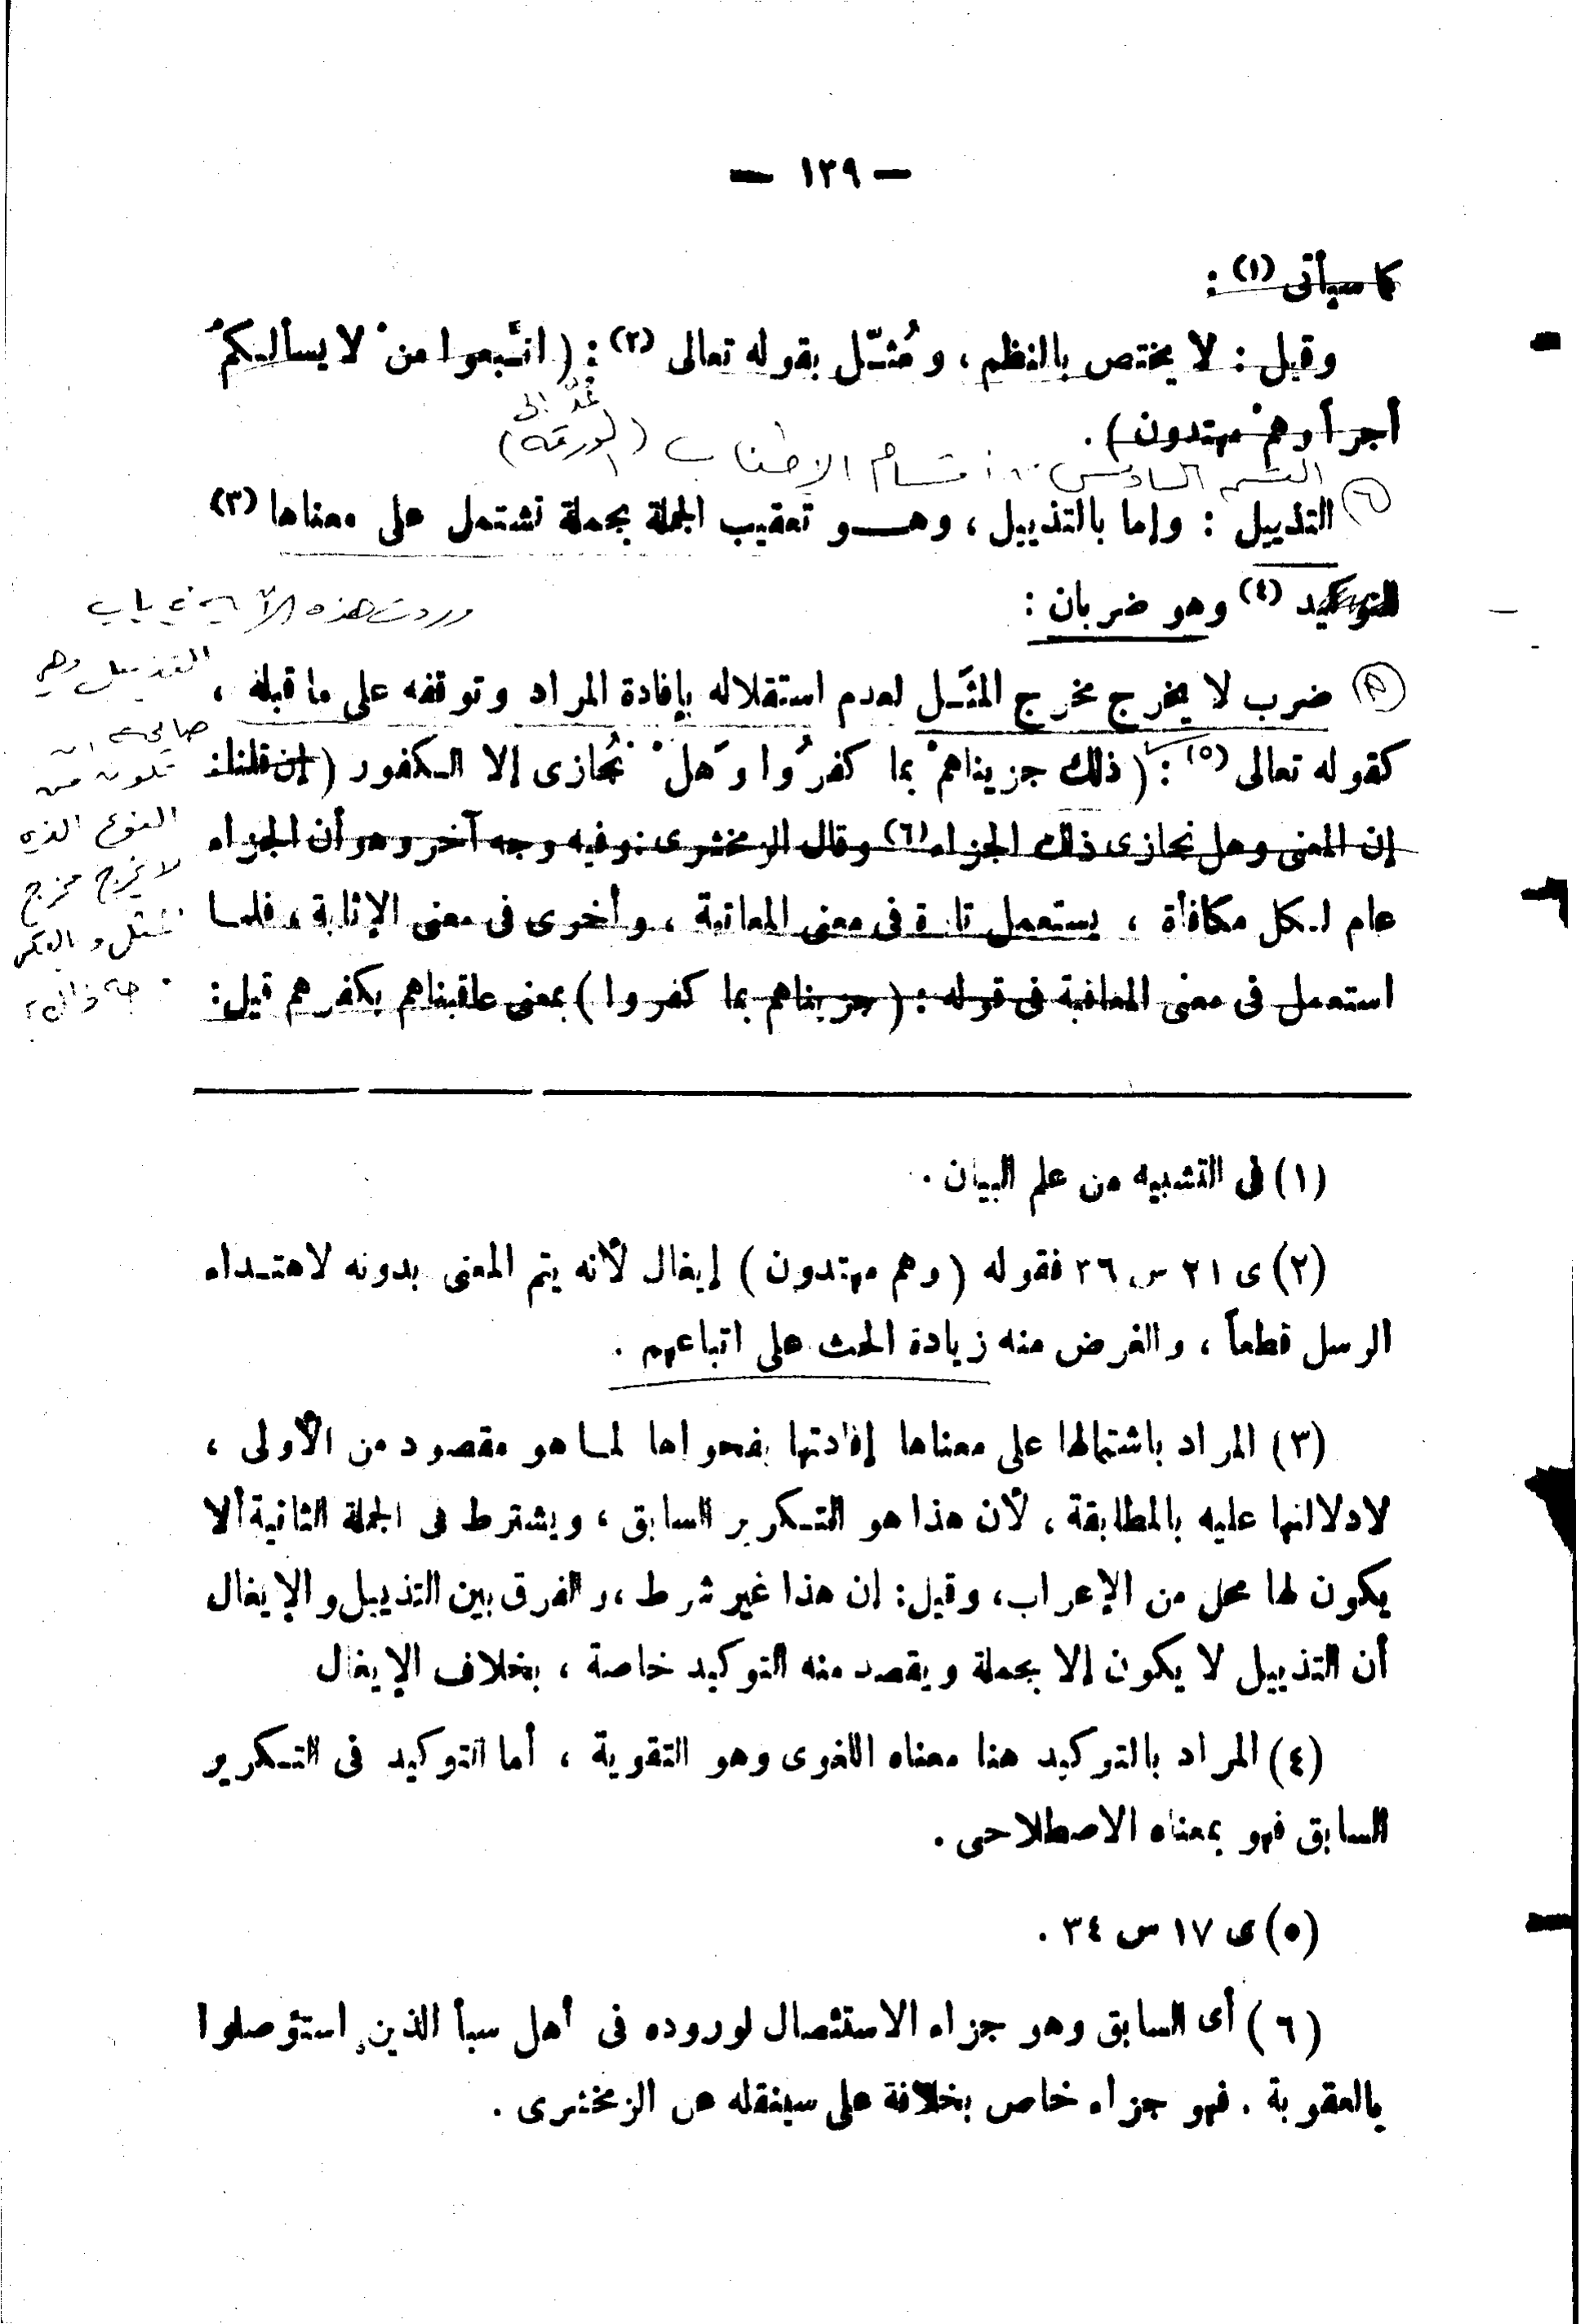 — ١٣٩ —
كما سيأتى (١) :
وقيل : لا يختص بالنظم ، ومُثـّل بقوله تعالى (٢) : ( اتـَّبعوا منْ لا يسألـكمْ
أجراً وهمْ مهتدون ) .
القسم السادس من أقسام الإطناب (الورقة)
٦ التذييل : وإما بالتذييل ، وهـــو تعقيب الجملة بجملة تشتمل على معناها (٣)
للتوكيد (٤) وهو ضربان :
ضرب لا يخرج مخرج المثـَـل لعدم استقلاله بإفادة المراد وتوقفه على ما قبله ،
كقوله تعالى (٥) : ( ذلك جزيناهمْ بما كفرُوا وَهلْ نُجازى إلا الـكفور ( إن قلنا :
إن المعنى وهل نجازى ذلك الجزاء (٦) وقال الزمخشرى : وفيه وجه آخر وهو أن الجزاء
عام لـكل مكافأة ، يستعمل تارة فى معنى المعاقبة ، وأخرى فى معنى الإثابة ، فلمـا
استعمل فى معنى المعاقبة فى قوله : ( جزيناهم بما كفروا ) بمعنى عاقبناهم بكفرهم قيل :
وردت هذه الآية في باب
التذييل وهي
صالحة أن
تكون من
النوع الذي
لا يخرج مخرج
المثل والعكس
(١) فى التشبيه من علم البيان .
(٢) ى ٢١ س ٣٦ فقوله ( وهم مهتدون ) إيغال لأنه يتم المعنى بدونه لاهتـداء
الرسل قطعاً ، والغرض منه زيادة الحث على اتباعهم .
(٣) المراد باشتمالها على معناها إفادتها بفحواها لمـا هو مقصود من الأولى ،
لادلالتها عليه بالمطابقة ، لأن هذا هو التـكرير السابق ، ويشترط فى الجملة الثانية ألا
يكون لها محل من الإعراب ، وقيل : إن هذا غير شرط ، والفرق بين التذييل والإيغال
أن التذييل لا يكون إلا بجملة ويقصد منه التوكيد خاصة ، بخلاف الإيغال
(٤) المراد بالتوكيد هنا معناه اللغوى وهو التقوية ، أما التوكيد فى التـكرير
السابق فهو بمعناه الاصطلاحى .
(٥) ى ١٧ س ٣٤ .
(٦) أى السابق وهو جزاء الاستئصال لوروده فى أهل سبأ الذين استؤصلوا
بالعقوبة . فهو جزاء خاص بخلافة على سينقله عن الزمخشرى .